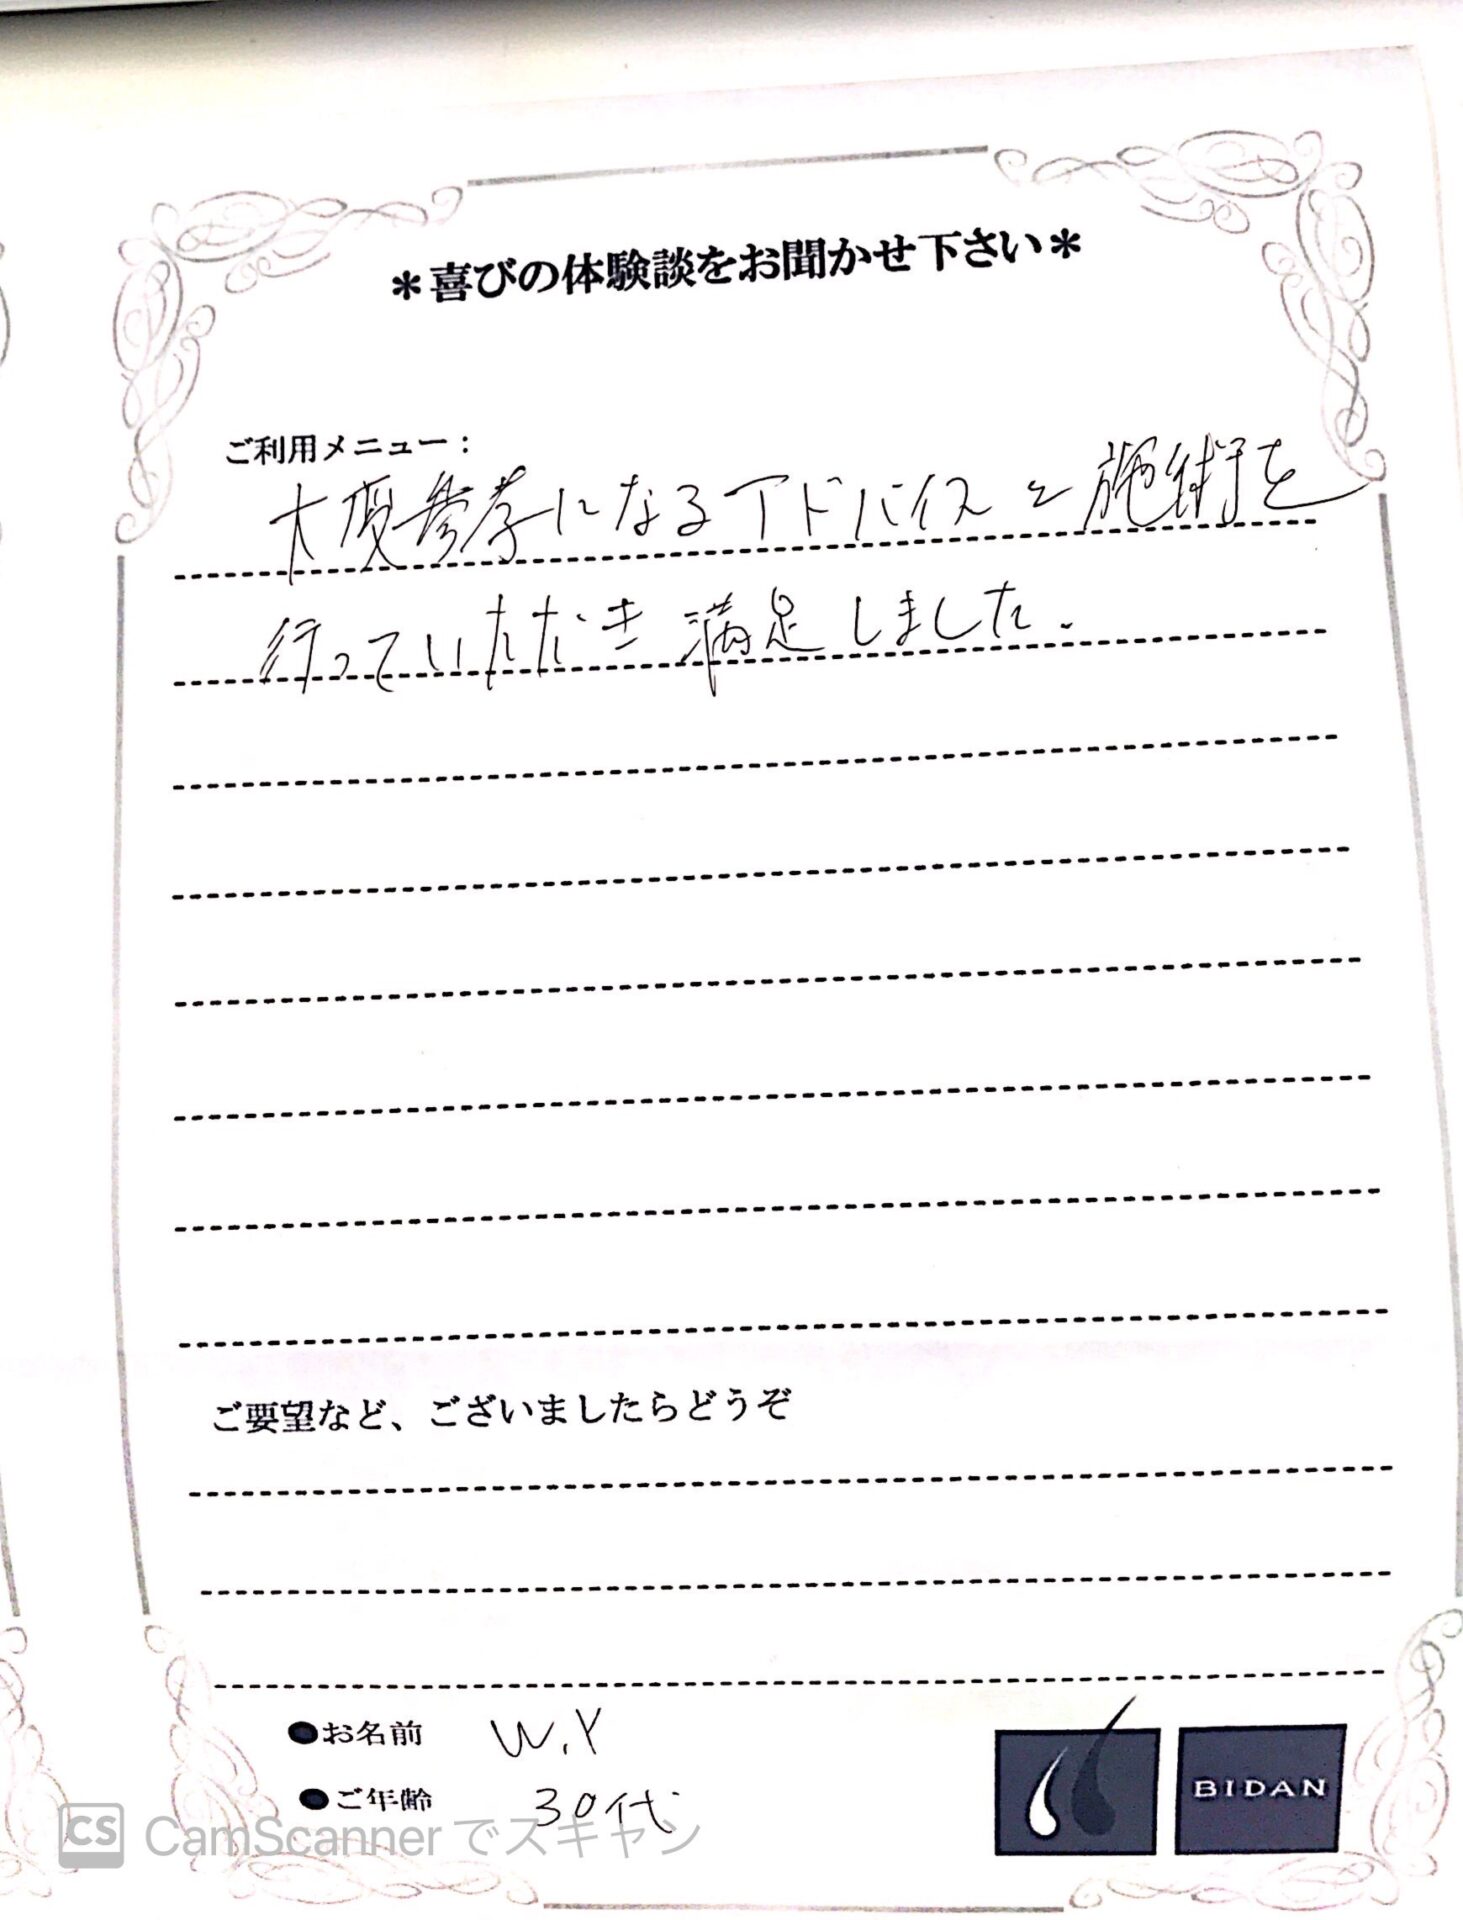 ＊喜びの体験談をお聞かせ下さい＊
ご利用メニュー：
大変参考になるアドバイスと施術を
行っていただき満足しました.
ご要望など、ございましたらどうぞ
●お名前 W.Y
●ご年齢 30代
BIDAN
CS CamScannerでスキャン